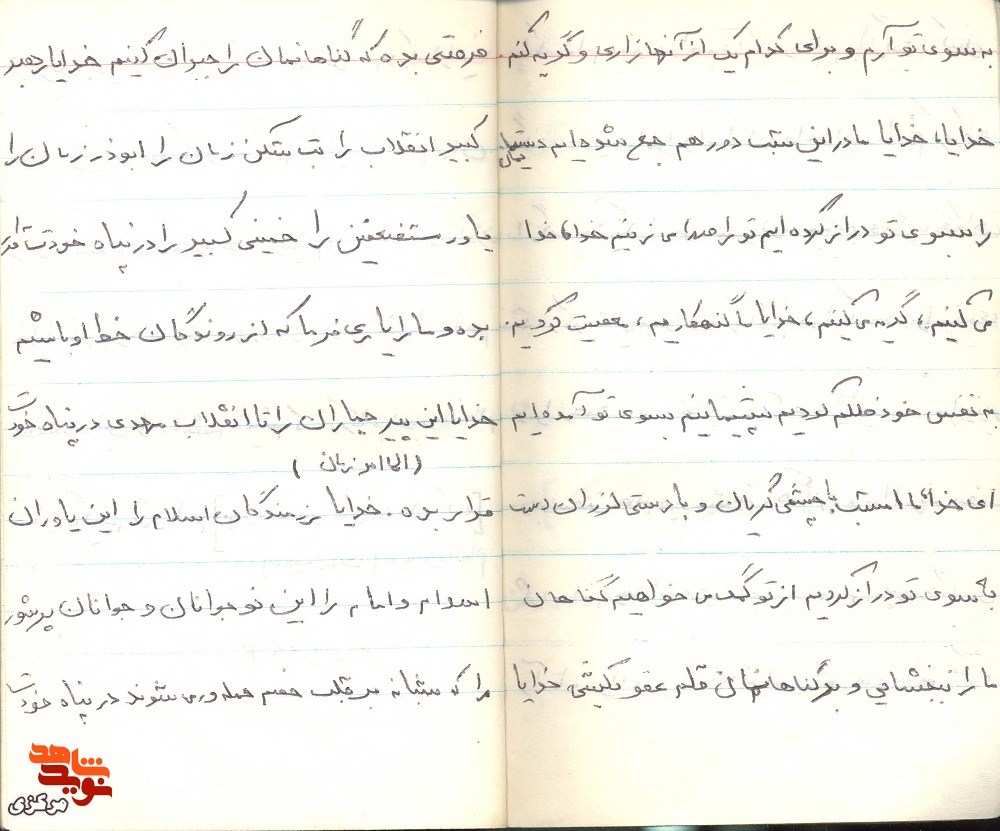 به سوی تو آرم و برای کدام یک از آنها زاری و گریه کنم.
خدایا، خدایا ما در این شب دور هم جمع شده ایم دستهایمان
را بسوی تو دراز کرده ایم تو را صدا می زنیم خدا خدا
می کنیم، گریه می کنیم، خدایا ما گنهکاریم، معصیت کردیم.
به نفس خود ظلم کردیم پشیمانیم بسوی تو آمده ایم
ای خدا ما امشب با چشمی گریان و با دستی لرزان دست
به سوی تو دراز کردیم از تو کمک می خواهیم گناهان
ما را ببخشایی و بر گناهانمان قلم عفو بکشی خدایا
فرصتی بده که گناهانمان را جبران کنیم خدایا رهبر
کبیر انقلاب را بت شکن زمان را ابوذر زمان را
یاور مستضعفین را خمینی کبیر را در پناه خودت قرار
بده و ما را یاری فرما که از روندگان خط او باشیم
خدایا این پیر جماران را تا انقلاب مهدی در پناه خودت
(امام زمان)
قرار بده. خدایا رزمندگان اسلام را این یاوران
اسلام و امام را این نوجوانان و جوانان پرشور
را که شبانه بر قلب خصم حمله ور می شوند در پناه خودت
نوید شاهد
مرکزی